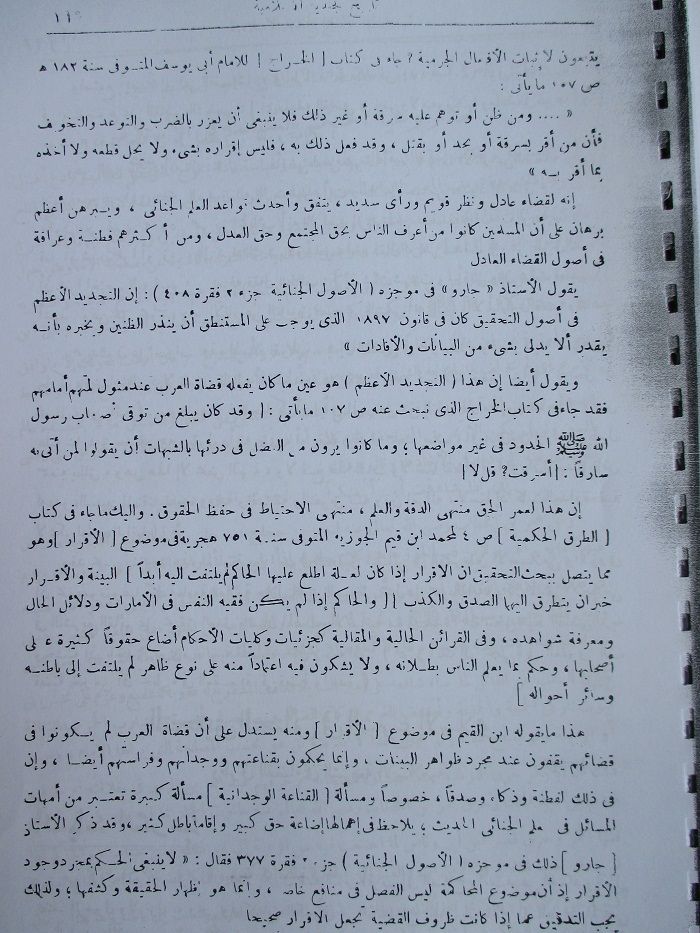 يتبعون لإثبات الأفعال الجرمية ؟ جاء فى كتاب [ الخراج ] للامام أبى يوسف المتوفى سنة ١٨٢ ه
ص ١٠٧ ما يأتى :
« .... ومن ظن أو توهم عليه سرقة أو غير ذلك فلا ينبغى أن يعزر بالضرب والتوعد والتخويف
فأن من أقر بسرقة أو بحد أو بقتل ، وقد فعل ذلك به ، فليس إقراره بشىء ولا يحل قطعه ولا أخذه
بما أقر به »
إنه لقضاء عادل ونظر قويم ورأى سديد ، يتفق وأحدث قواعد العلم الجنائى ، ويبرهن أعظم
برهان على أن المسلمين كانوا من أعرف الناس بحق المجتمع وحق العدل ، ومن أكثرهم فطنة وعراقة
فى أصول القضاء العادل
يقول الأستاذ « جارو » فى موجزه ( الأصول الجنائية جزء ٢ فقرة ٤٠٨ ) : إن التجديد الأعظم
فى أصول التحقيق كان فى قانون ١٨٩٧ الذى يوجب على المستنطق أن ينذر الظنين ويخبره بأنه
يقدر ألا يدلى بشىء من البيانات والأفادات »
ويقول أيضا إن هذا ( التجديد الأعظم ) هو عين ما كان يفعله قضاة العرب عند مثول المتهم أمامهم
فقد جاء فى كتاب الخراج الذى نبحث عنه ص ١٠٧ مايأتى : [ وقد كان يبلغ من توقى أصحاب رسول
الله ﷺ الحدود فى غير مواضعها ، وما كانوا يرون من الفضل فى درئها بالشبهات أن يقولوا لمن أتى به
سارقا : [ أسرقت ؟ قل لا ]
إن هذا لعمر الحق منتهى الدقة والعلم ، منتهى الاحتياط فى حفظ الحقوق . واليك ما جاء فى كتاب
[ الطرق الحكمية ] ص ٤ لمحمد ابن قيم الجوزيه المتوفى سنة ٧٥١ هجرية فى موضوع [ الأقرار ] وهو
مما يتصل ببحث التحقيق ان الاقرار إذا كان لعلة اطلع عليها الحاكم لم يلتفت اليه أبداً ] البينة والأقرار
خبران يتطرق اليها الصدق والكذب ] [ والحاكم إذا لم يكن فقيه النفس فى الأمارات ودلائل الحال
ومعرفة شواهده ، وفى القرائن الحالية والمقالية كجزئيات وكليات الأحكام أضاع حقوقاً كثيرة على
أصحابها ، وحكم بما يعلم الناس بطلانه ، ولا يشكون فيه اعتماداً منه على نوع ظاهر لم يلتفت إلى باطنه
وسائر أحواله ]
هذا مايقوله ابن القيم فى موضوع [ الأقرار ] ومنه يستدل على أن قضاة العرب لم يكونوا فى
قضائهم يقفون عند مجرد ظواهر البينات ، وإنما يحكمون بقناعتهم ووجدانهم وفراستهم أيضا ، وإن
فى ذلك لفطنة وذكاء وصدقاً ، خصوصاً ومسألة [ القناعة الوجدانية ] مسألة كبيرة تعتبر من أمهات
المسائل فى علم الجنائى الحديث ، يلاحظ فى إهمالها إضاعة حق كبير وإقامة باطل كثير ، وقد ذكر الأستاذ
[ جارو ] ذلك فى موجزه ( الأصول الجنائية ) جزء ٢ فقرة ٣٧٧ فقال : « لا ينبغى الحكم بمجرد وجود
الأقرار إذ أن موضوع المحاكمة ليس الفصل فى منافع خاصة ، وإنما هو إظهار الحقيقة وكشفها ، ولذلك
يجب التدقيق عما إذا كانت ظروف القضية تجعل الاقرار صحيحا